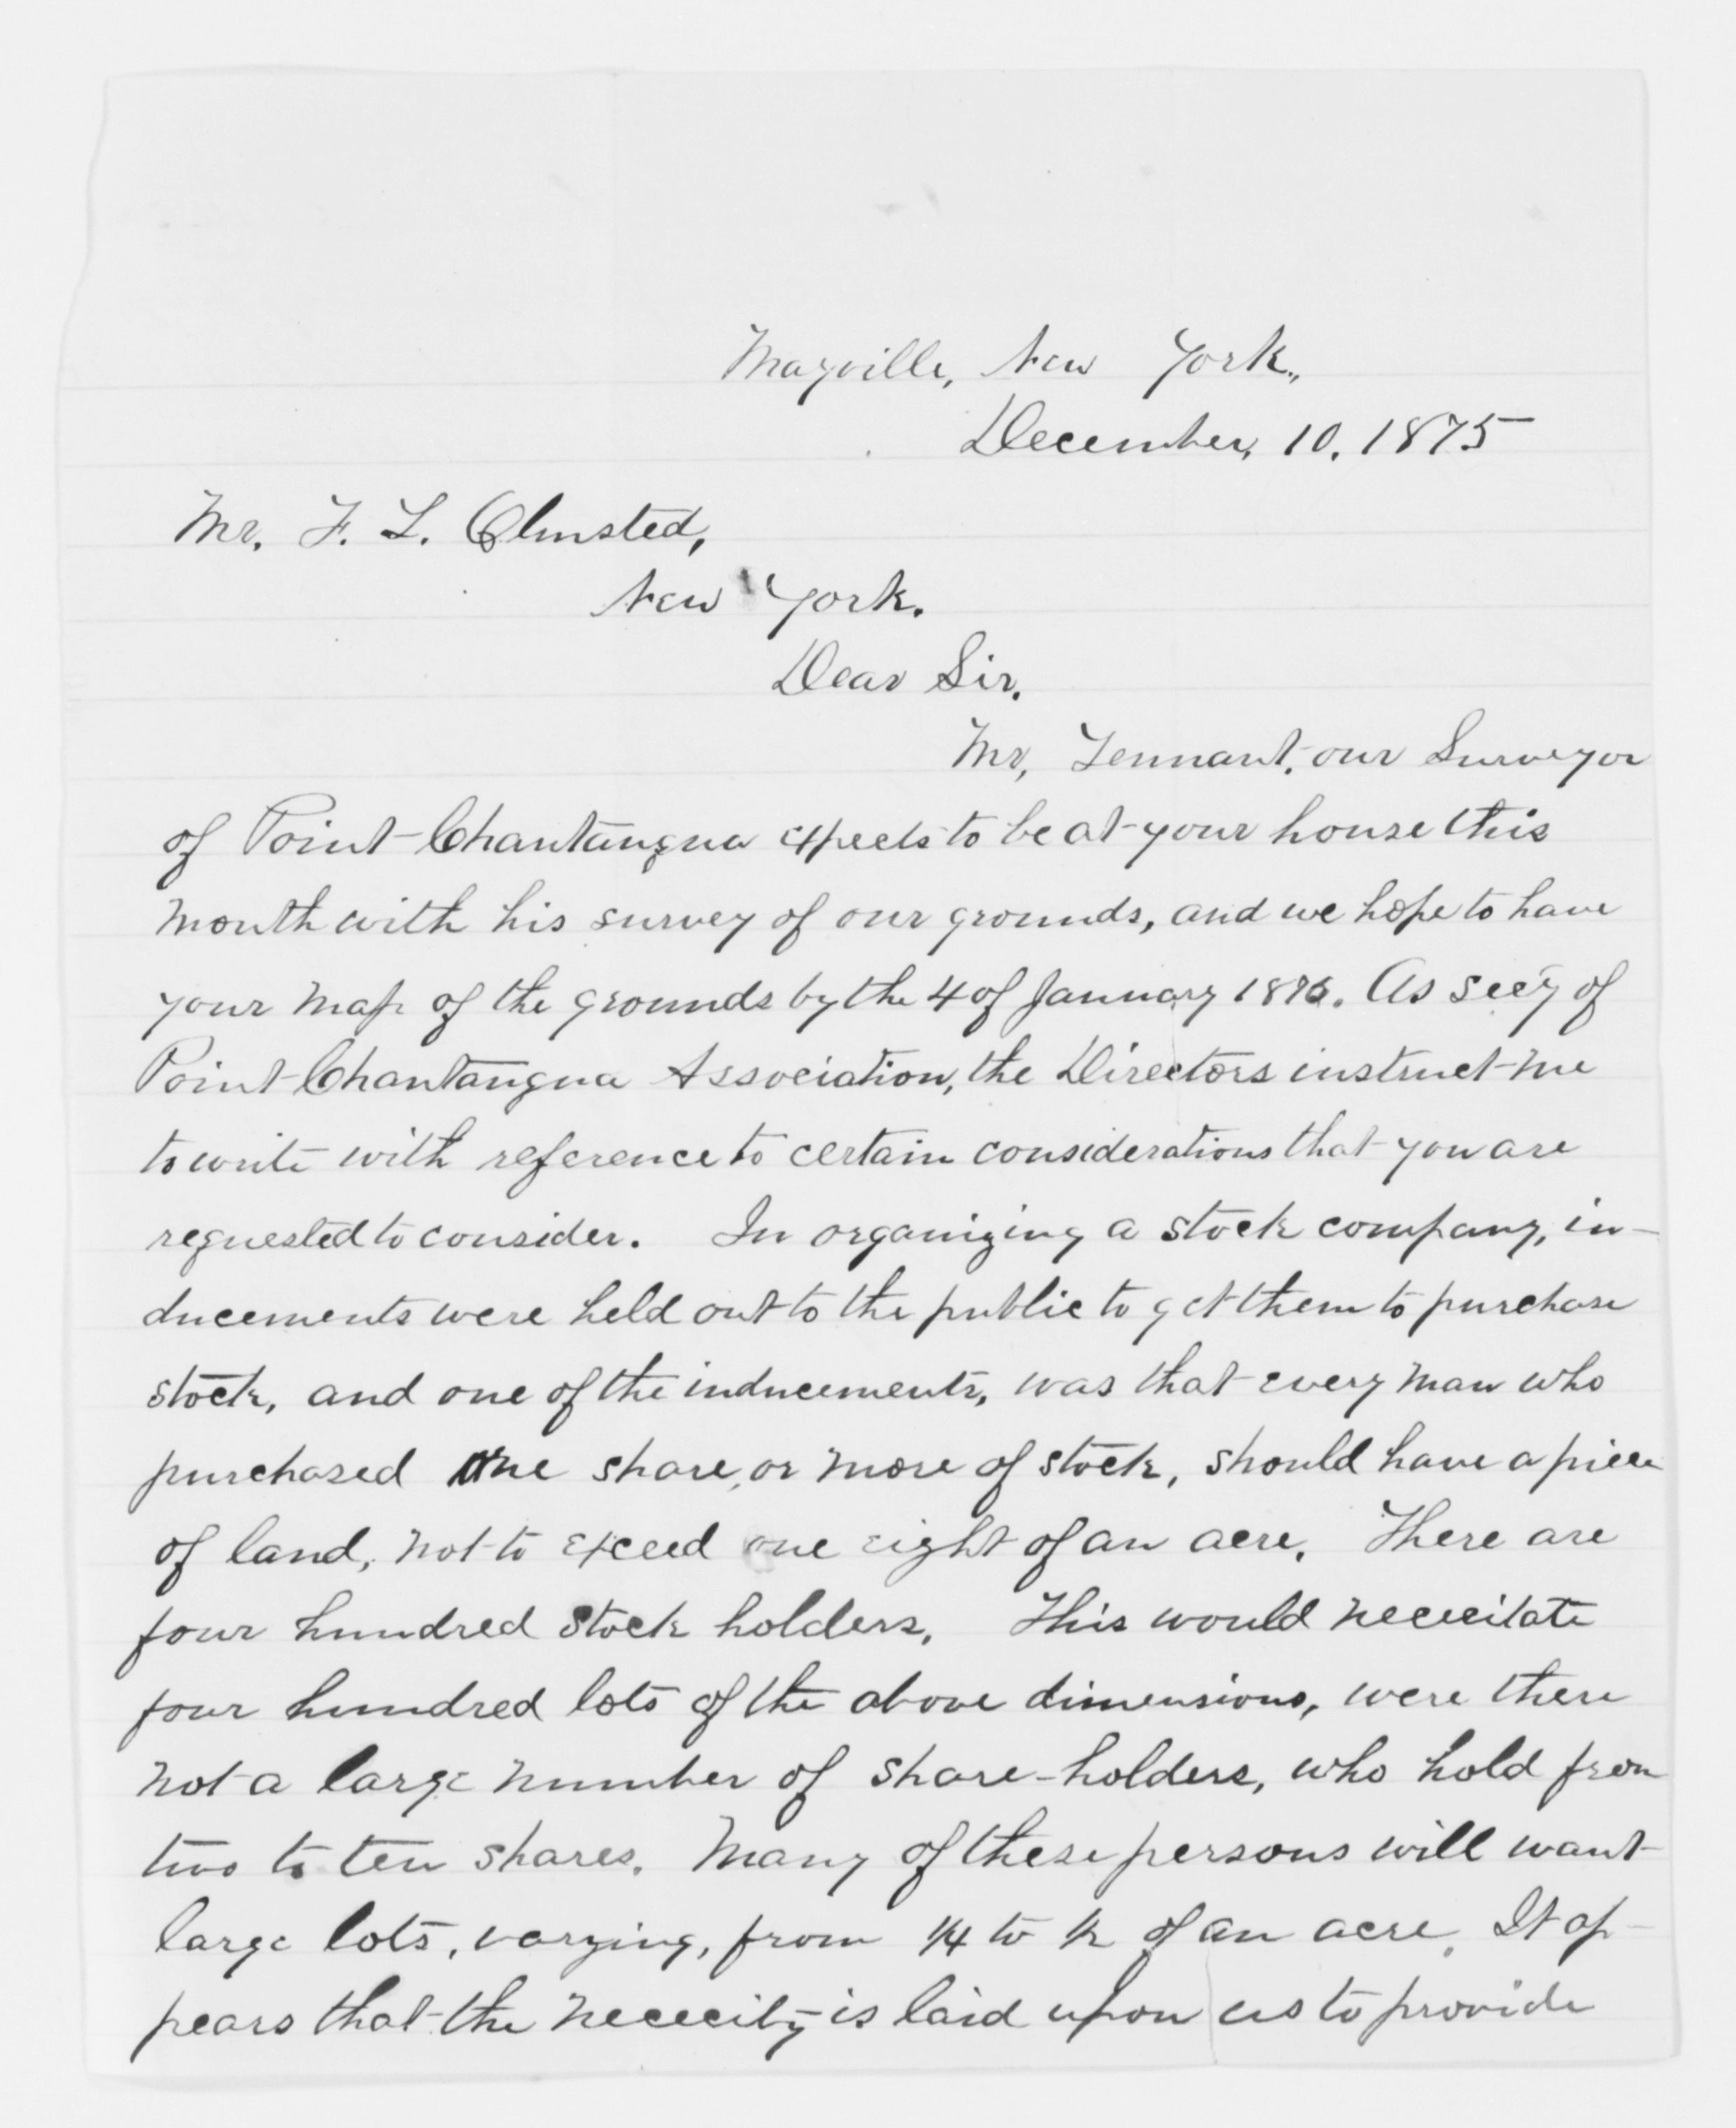 Mayville, New York.,
December, 10. 1875
Mr. F. L. Olmsted,
New York.
Dear Sir.
Mr, Tennant, our Surveyor
of Point Chautauqua expects to be at your house this
month with his survey of our grounds, and we hope to have
your map of the grounds by the 4 of January 1876. As sec'y of
Point Chautauqua Association, the Directors instruct me
to write with reference to certain considerations that you are
requested to consider. In organizing a stock company, in-
ducements were held out to the public to get them to purchase
stock, and one of the inducements, was that every man who
purchased one share, or more of stock, should have a piece
of land, not to exceed one eight of an acre. There are
four hundred stock holders. This would nececitate
four hundred lots of the above dimensions, were there
not a large number of share-holders, who hold from
two to ten shares. Many of these persons will want
large lots, varying, from 1/4 to 1/2 of an acre. It ap-
pears that the nececity is laid upon us to provide